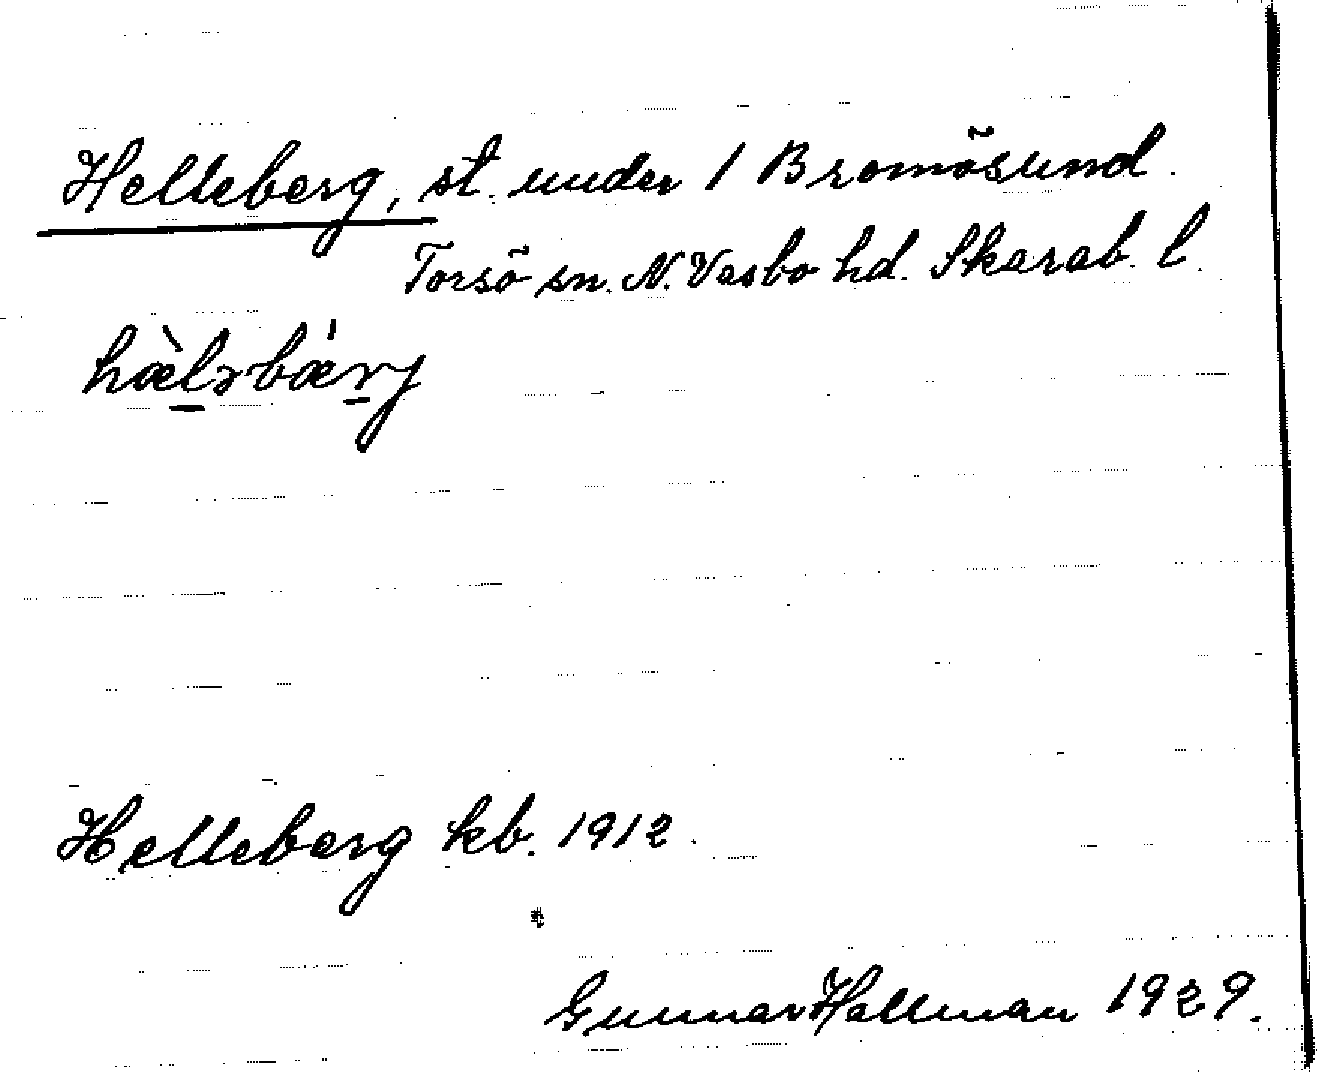 Helleberg, st. under 1 Bromösund.
Torsö sn. N. Vasbo hd. Skarab. l.
hæ̀lɿbǽrj
Helleberg kb. 1912.
Gunnar Hallman 1929.